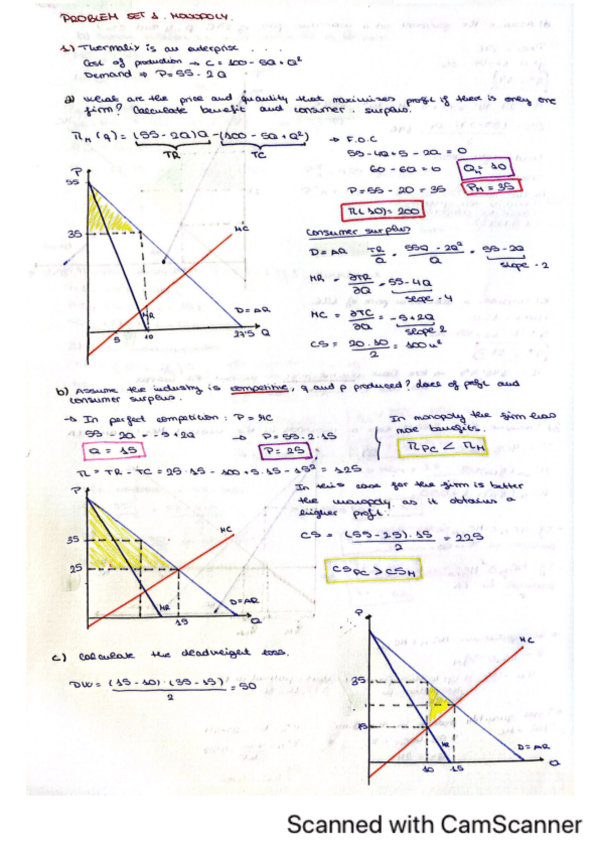 PROBLEM SET 1. MONOPOLY.
1) Thermalix is an enterprise . . .
Cost of production → C = 100 - 5Q + Q²
Demand → P = 55 - 2Q
a) What are the price and quantity that maximizes profit if there is only one
firm? Calculate benefit and consumer surplus.
π_M (q) = (55 - 2Q)Q - (100 - 5Q + Q²)
TR TC
→ F.O.C
55 - 4Q + 5 - 2Q = 0
60 - 6Q = 0 Q_M = 10
P = 55 - 20 = 35 P_M = 35
π(10) = 200
Consumer surplus
D = AR TR/Q = 55Q - 2Q²/Q = 55 - 2Q
slope - 2
MR = ∂TR/∂Q = 55 - 4Q
slope - 4
MC = ∂TC/∂Q = -5 + 2Q
slope 2
CS = 20 · 10/2 = 100 u²
P
55
35
MC
MR
D = AR
5 10 27'5 Q
b) Assume the industry is competitive, q and p produced? does of profit and
consumer surplus.
→ In perfect competition : P = MC
55 - 2Q = -5 + 2Q → P = 55 - 2 · 15
Q = 15 P = 25
In monopoly the firm has
more benefits.
π_PC < π_M
π = TR - TC = 25 · 15 - 100 + 5 · 15 - 15² = 125
In this case for the firm is better
the monopoly as it obtains a
higher profit.
CS = (55 - 25) · 15/2 = 225
CS_PC > CS_M
P
35
25
MC
MR
D = AR
15 Q
c) Calculate the deadweight loss.
DW = (15 - 10) · (35 - 15)/2 = 50
P
35
15
MC
MR
D = AR
10 15 Q
Scanned with CamScanner